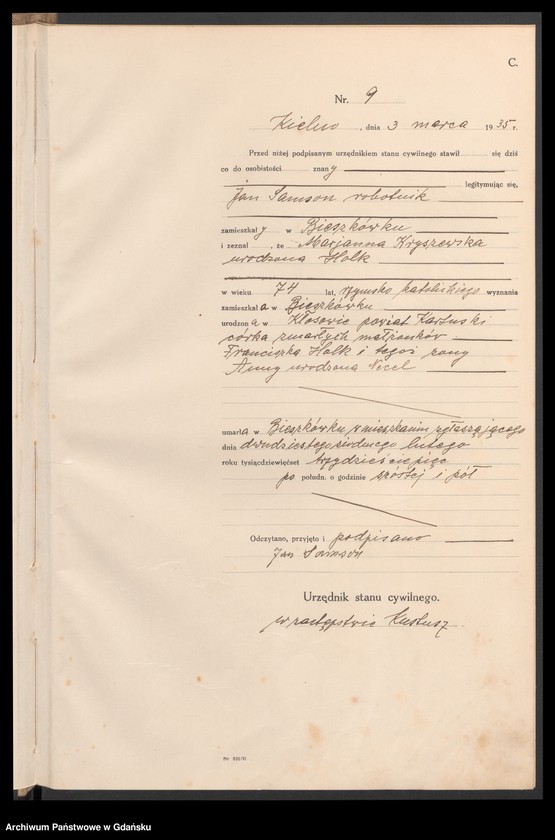 C.
Nr. 9
Kielno, dnia 3 marca 1935 r.
Przed niżej podpisanym urzędnikiem stanu cywilnego stawił się dziś
co do osobistości znany
legitymując się,
Jan Samson robotnik
zamieszkały w Bieszkówku
i zeznał, że Marjanna Kryszewska
urodzona Holk
w wieku 74 lat, rzymsko katolickiego wyznania
zamieszkała w Bieszkówku
urodzona w Kłosowie powiat Kartuski
córka zmarłych małżonków
Franciszka Holk i tegoż żony
Anny urodzona Necel
umarła w Bieszkówku w mieszkaniu zgłaszającego
dnia dwudziestego siódmego lutego
roku tysiącdziewięćset trzydzieścipięć
po połudn. o godzinie szóstej i pół
Odczytano, przyjęto i podpisano
Jan Samson
Urzędnik stanu cywilnego.
w zastępstwie Kustusz
Nr XII/31
Archiwum Państwowe w Gdańsku